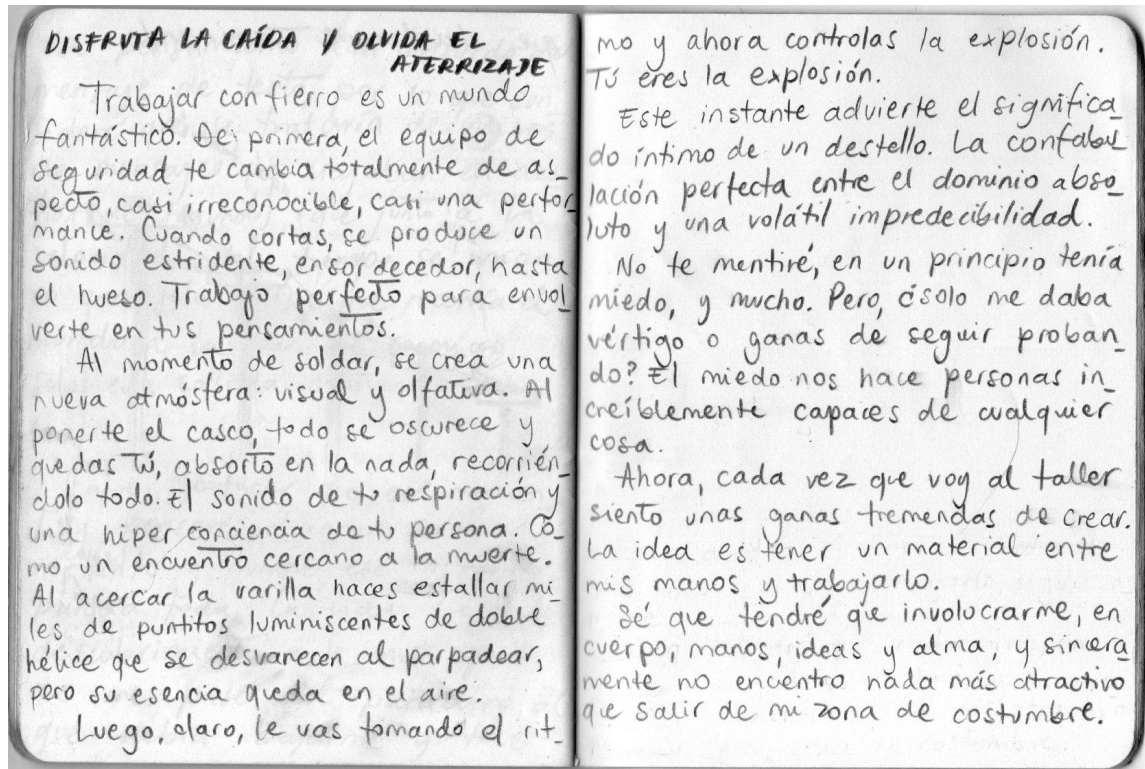 DISFRUTA LA CAÍDA Y OLVIDA EL
ATERRIZAJE
Trabajar con fierro es un mundo
fantástico. De primera, el equipo de
seguridad te cambia totalmente de as_
pecto, casi irreconocible, casi una perfor
mance. Cuando cortas, se produce un
sonido estridente, ensordecedor, hasta
el hueso. Trabajo perfecto para envol_
verte en tus pensamientos.
Al momento de soldar, se crea una
nueva atmósfera: visual y olfativa. Al
ponerte el casco, todo se oscurece y
quedas tú, absorto en la nada, recorrién_
dolo todo. El sonido de tu respiración y
una hiper conciencia de tu persona. Có_
mo un encuentro cercano a la muerte.
Al acercar la varilla haces estallar mi_
les de puntitos luminiscentes de doble
hélice que se desvanecen al parpadear,
pero su esencia queda en el aire.
Luego, claro, le vas tomando el rit_
mo y ahora controlas la explosión.
Tú eres la explosión.
Este instante advierte el significa_
do íntimo de un destello. La confabu_
lación perfecta entre el dominio abso_
luto y una volátil impredecibilidad.
No te mentiré, en un principio tenía
miedo, y mucho. Pero, ¿solo me daba
vértigo o ganas de seguir proban_
do? El miedo nos hace personas in_
creíblemente capaces de cualquier
cosa.
Ahora, cada vez que voy al taller
siento unas ganas tremendas de crear.
La idea es tener un material entre
mis manos y trabajarlo.
Sé que tendré que involucrarme, en
cuerpo, manos, ideas y alma, y sincera_
mente no encuentro nada más atractivo
que salir de mi zona de costumbre.